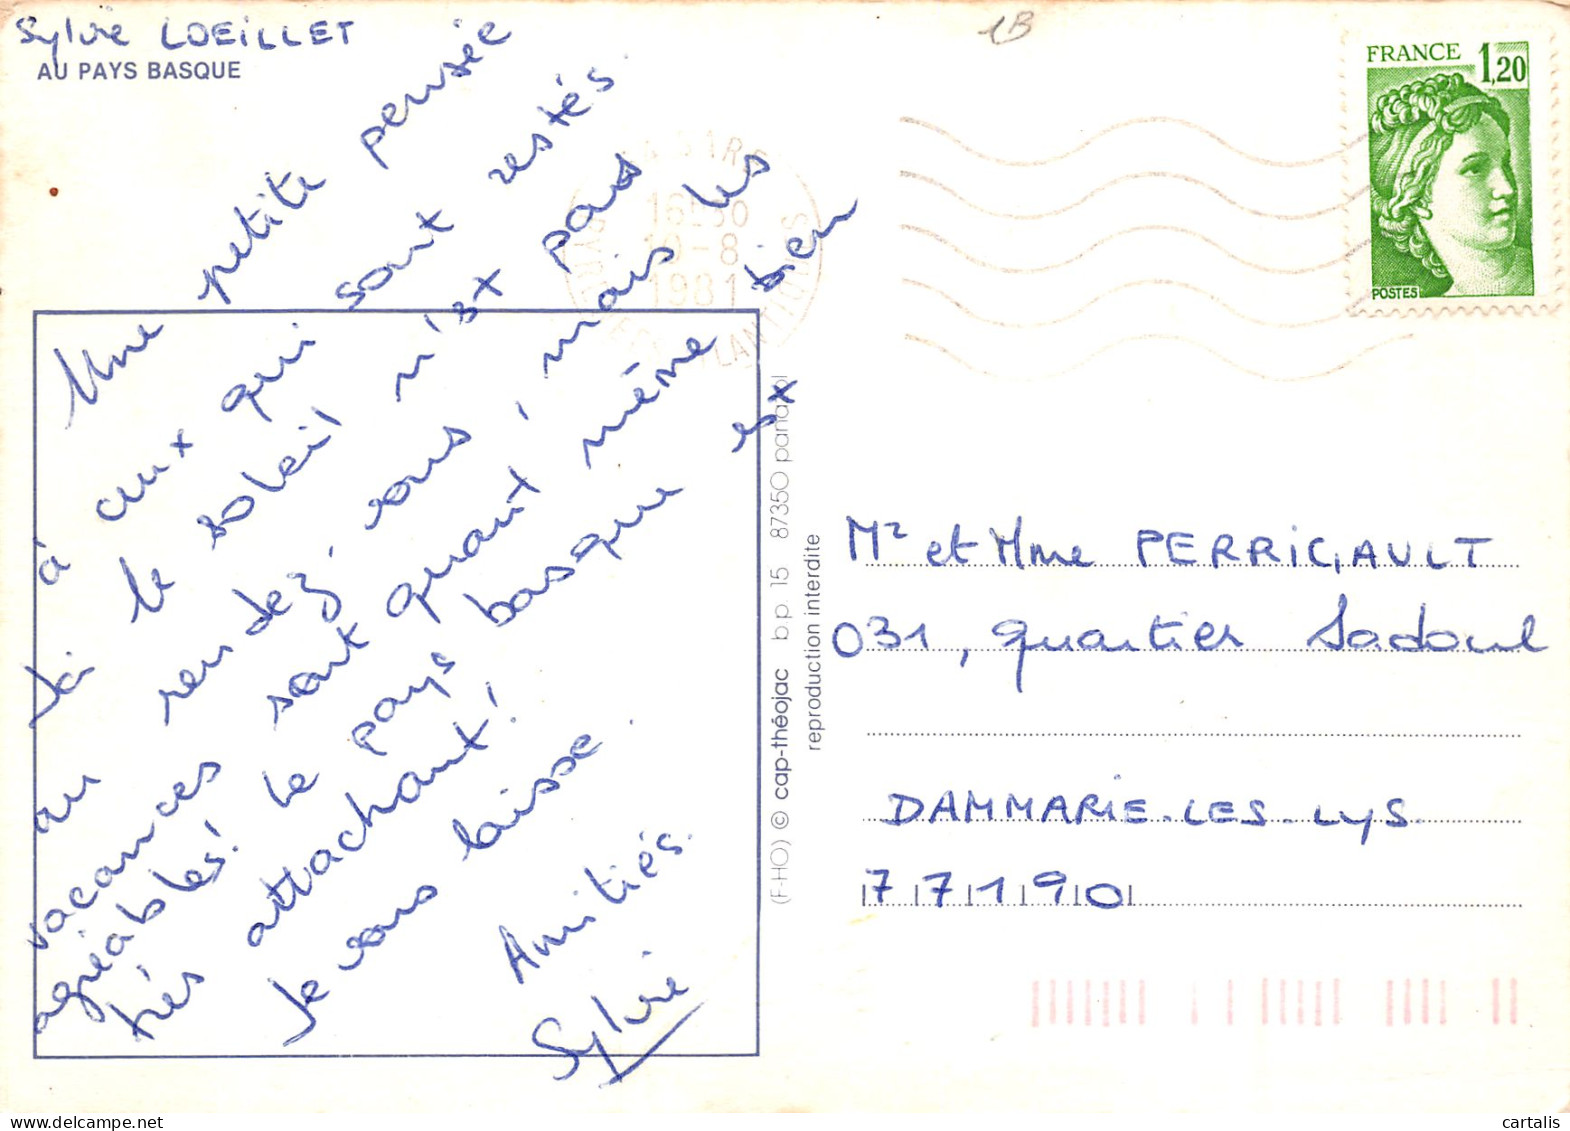 Sylvie LOEILLET
AU PAYS BASQUE
1B
FRANCE 1,20
POSTES
16H30
-8
1981
Une petite pensée
à ceux qui sont restés.
Ici le soleil n'est pas
au rendez-vous, mais les
vacances sont quant même bien
agréables! Le pays basque est
très attachant!
Je vous laisse.
Amitiés.
Sylvie
(F-HO) © cap-théojac b.p. 15 87350 panazol
reproduction interdite
Mr et Mme PERRIGAULT
031, quartier Sadoul
DAMMARIE-LES-LYS
77190
cartalis